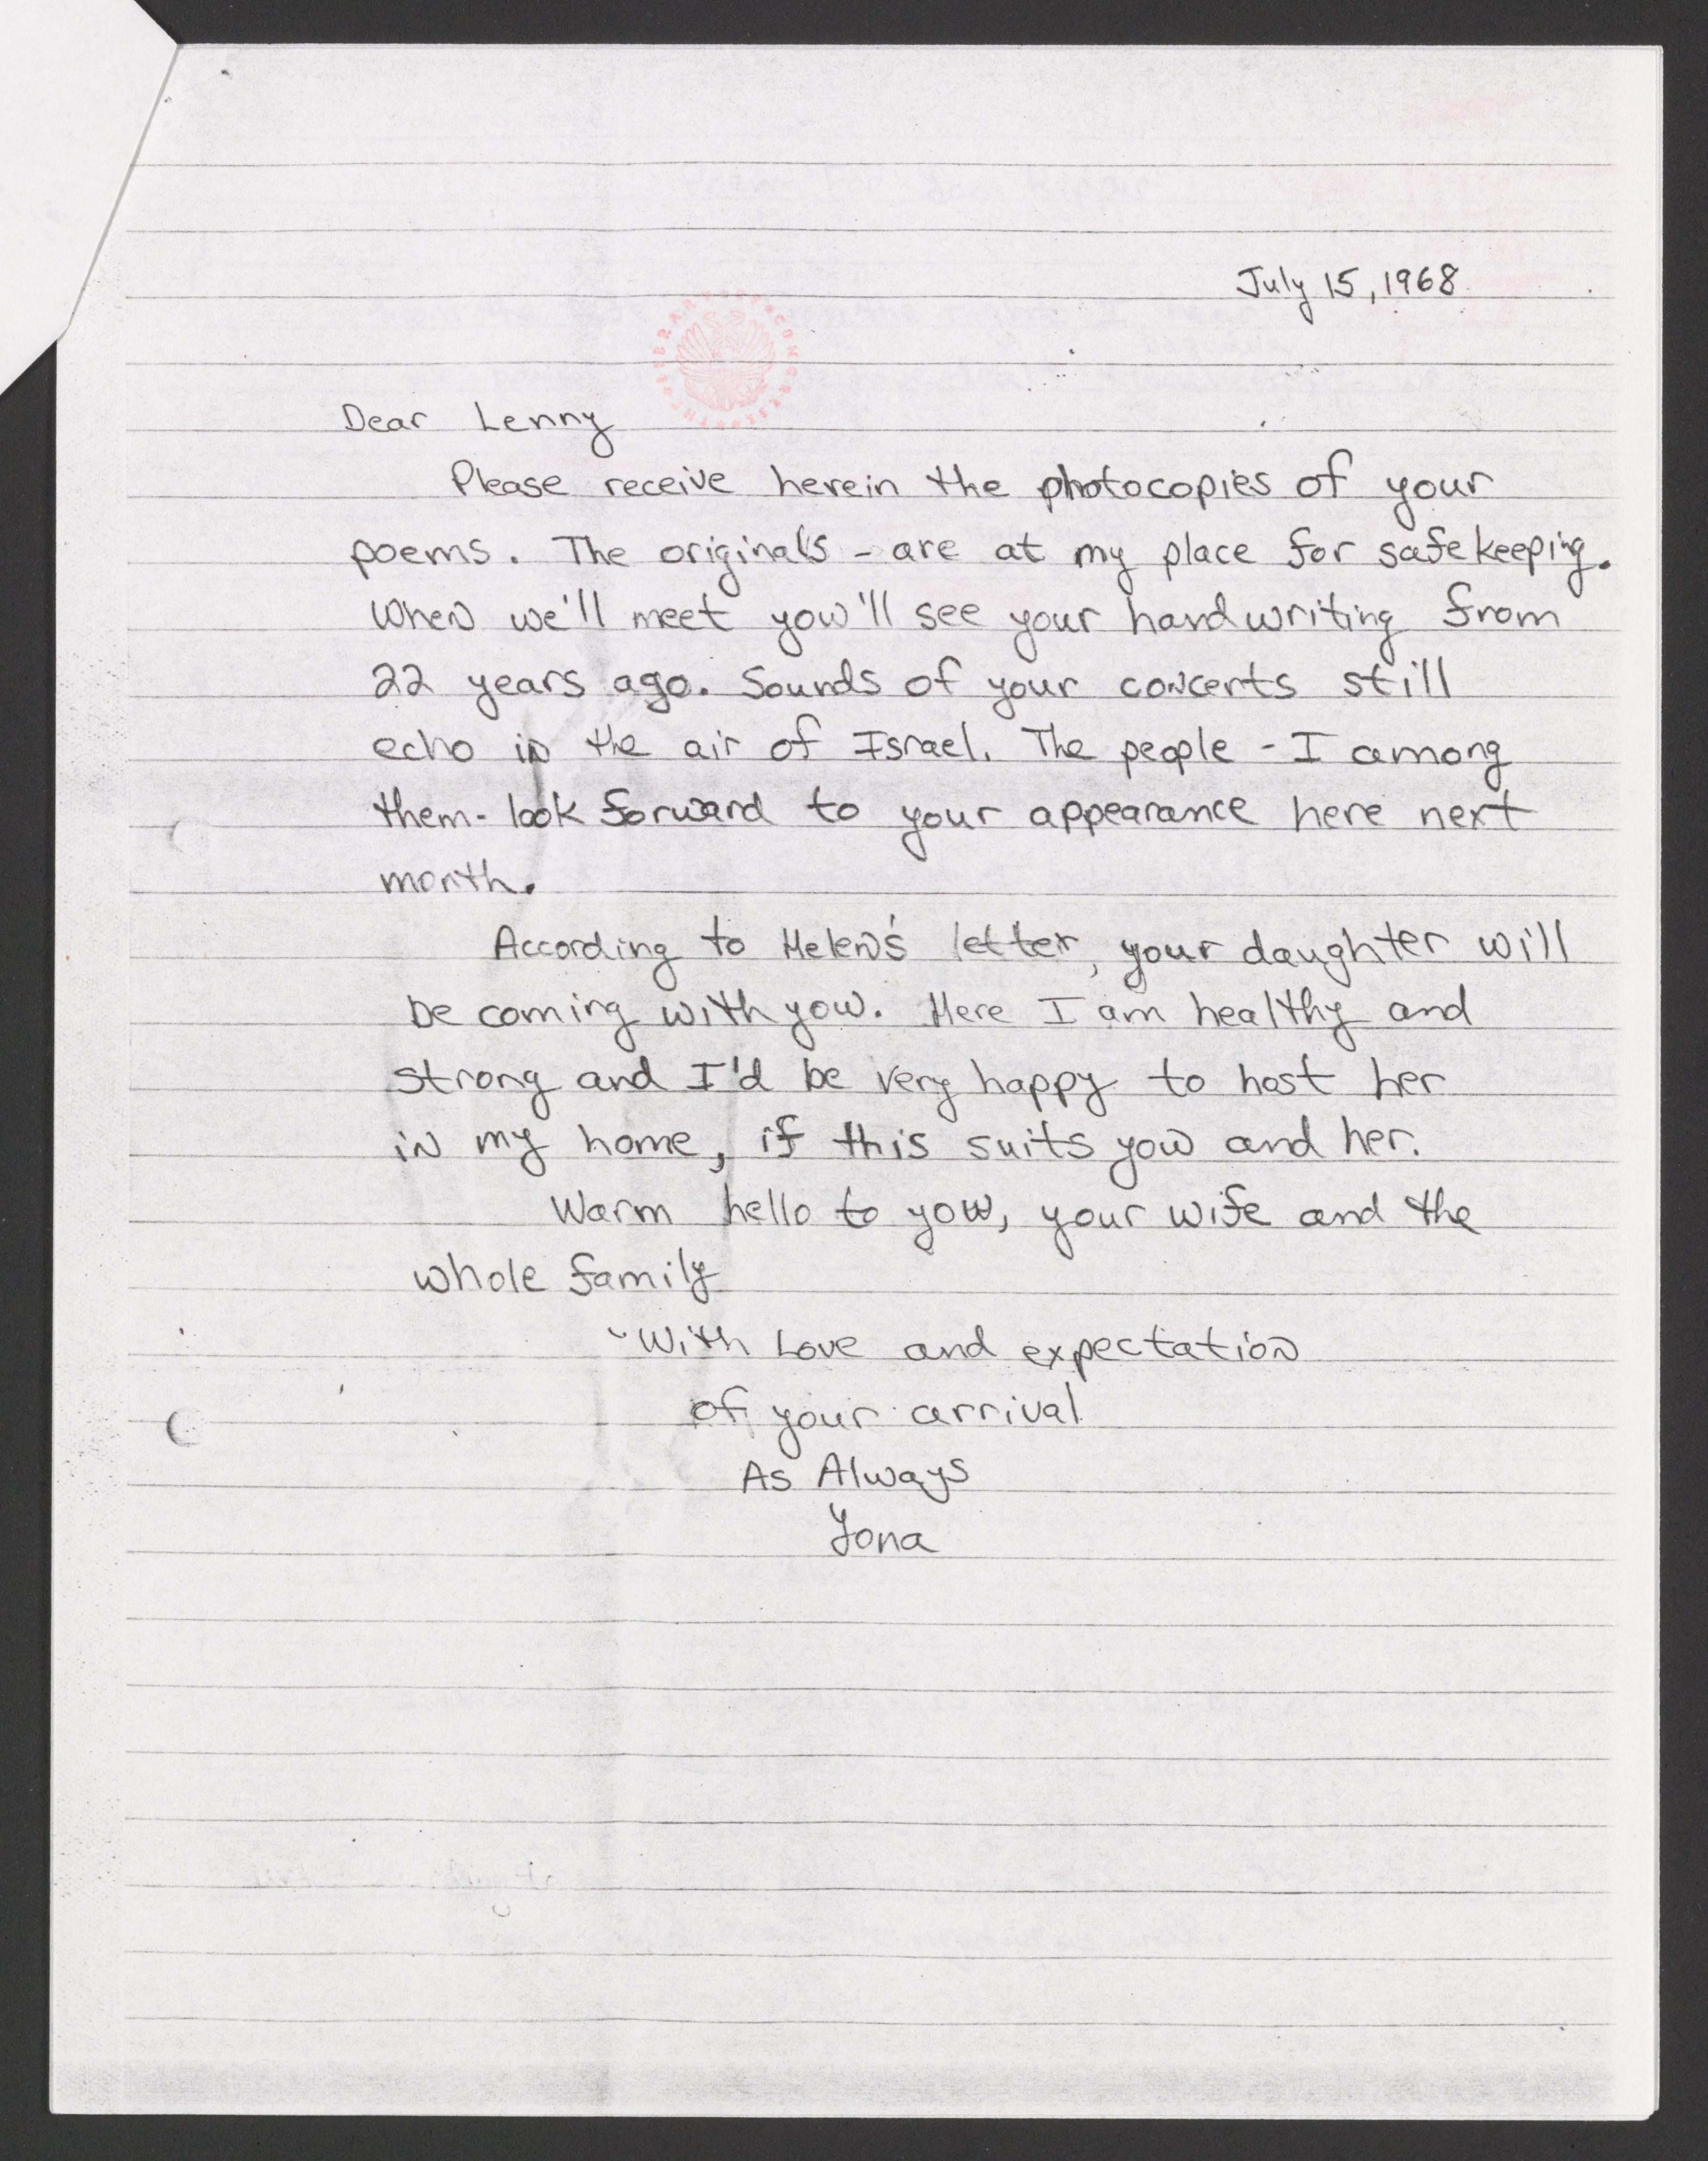 July 15, 1968
Dear Lenny
Please receive herein the photocopies of your
poems. The originals - are at my place for safekeeping.
When we'll meet you'll see your handwriting from
22 years ago. Sounds of your concerts still
echo in the air of Israel. The people - I among
them - look forward to your appearance here next
month.
According to Helen's letter, your daughter will
be coming with you. Here I am healthy and
strong and I'd be very happy to host her
in my home, if this suits you and her.
Warm hello to you, your wife and the
whole family
With Love and expectation
of your arrival
As Always
Yona